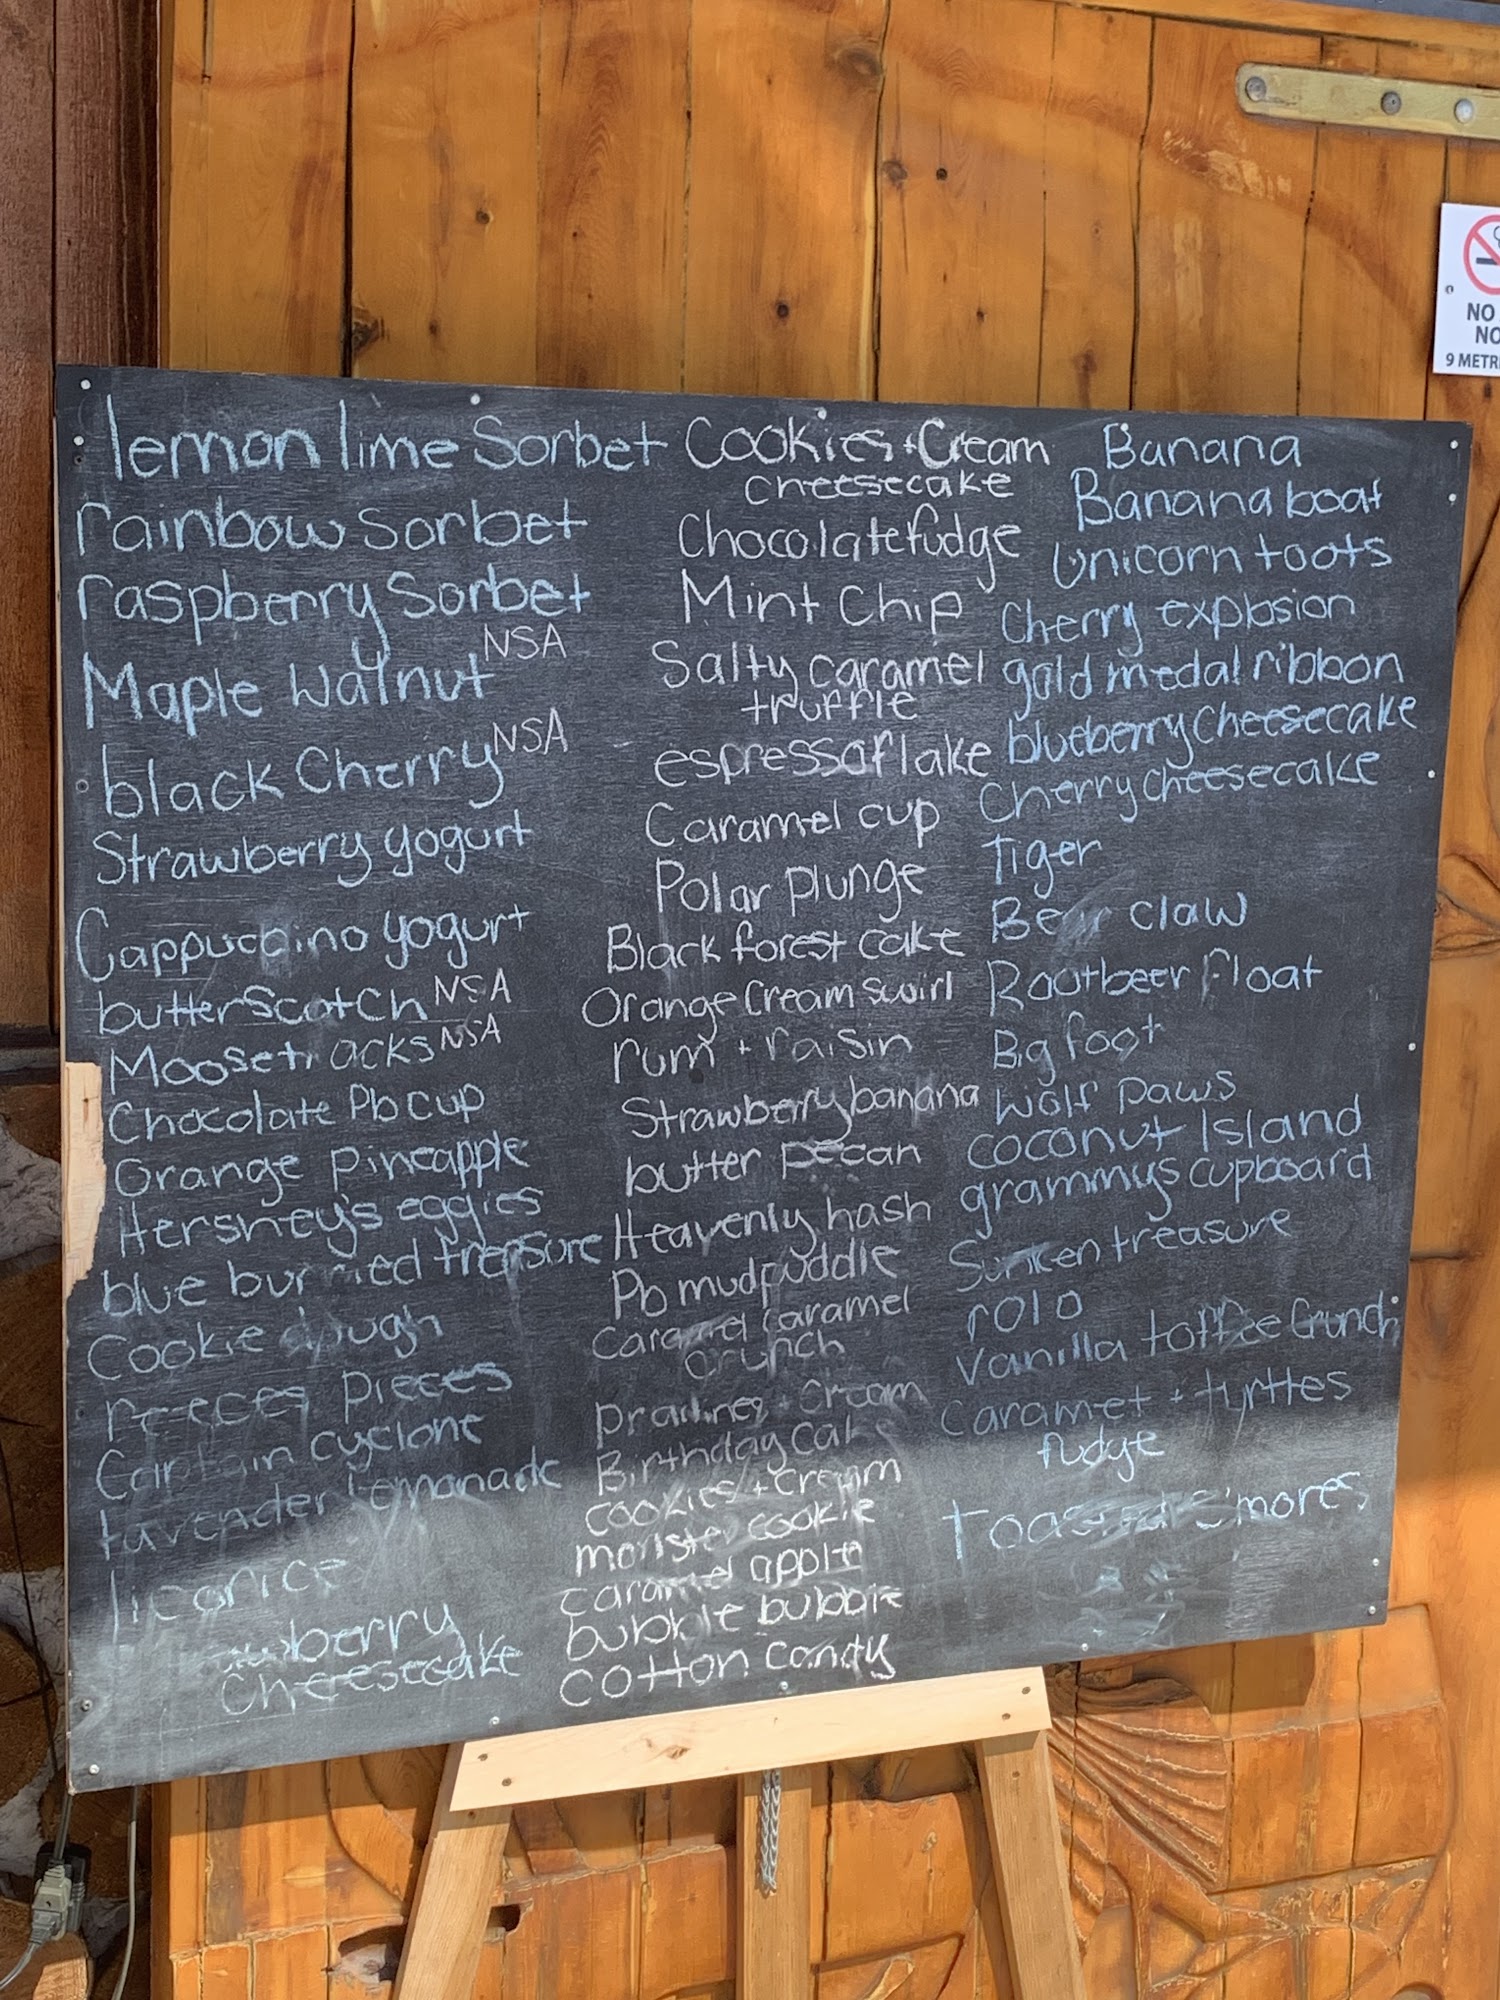 lemon lime Sorbet
rainbow Sorbet
raspberry Sorbet
Maple Walnut NSA
black Cherry NSA
Strawberry yogurt
Cappuccino yogurt
butterScotch NSA
Moosetracks NSA
Chocolate Pb cup
Orange pineapple
Hershey's eggies
blue burried treasure
Cookie dough
reeces pieces
Captain cyclone
lavender lemonade
licorice
berry
cheesecake
Cookies + Cream
cheesecake
Chocolate fudge
Mint Chip
Salty caramel
truffle
espresso flake
Caramel cup
Polar plunge
Black forest cake
Orange Cream swirl
rum + raisin
Strawberry banana
butter pecan
Heavenly hash
Pb mudpuddle
Caramel Caramel
crunch
pralines + Cream
Birthday cake
cookies + cream
monster cookie
caramel apple
bubble bubble
cotton candy
Banana
Banana boat
Unicorn toots
Cherry explosion
gold medal ribbon
blueberry cheesecake
Cherry cheesecake
Tiger
Bear claw
Rootbeer float
Big foot
Wolf paws
coconut Island
grammys cupboard
Sunken treasure
rolo
Vanilla toffee Crunch
Caramel + turtles
fudge
toasted S'mores
NO
NO
9 METR